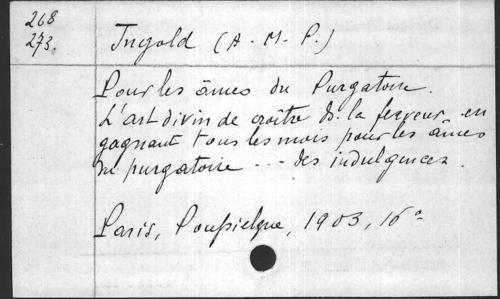 268
273.
Ingold (A. M. P.)
Pour les âmes du Purgatoire.
L'art divin de croître ds. la ferveur en
gagnant tous les mois pour les âmes
du purgatoire --- des indulgences.
Paris, Poussielgue, 1903, 16°